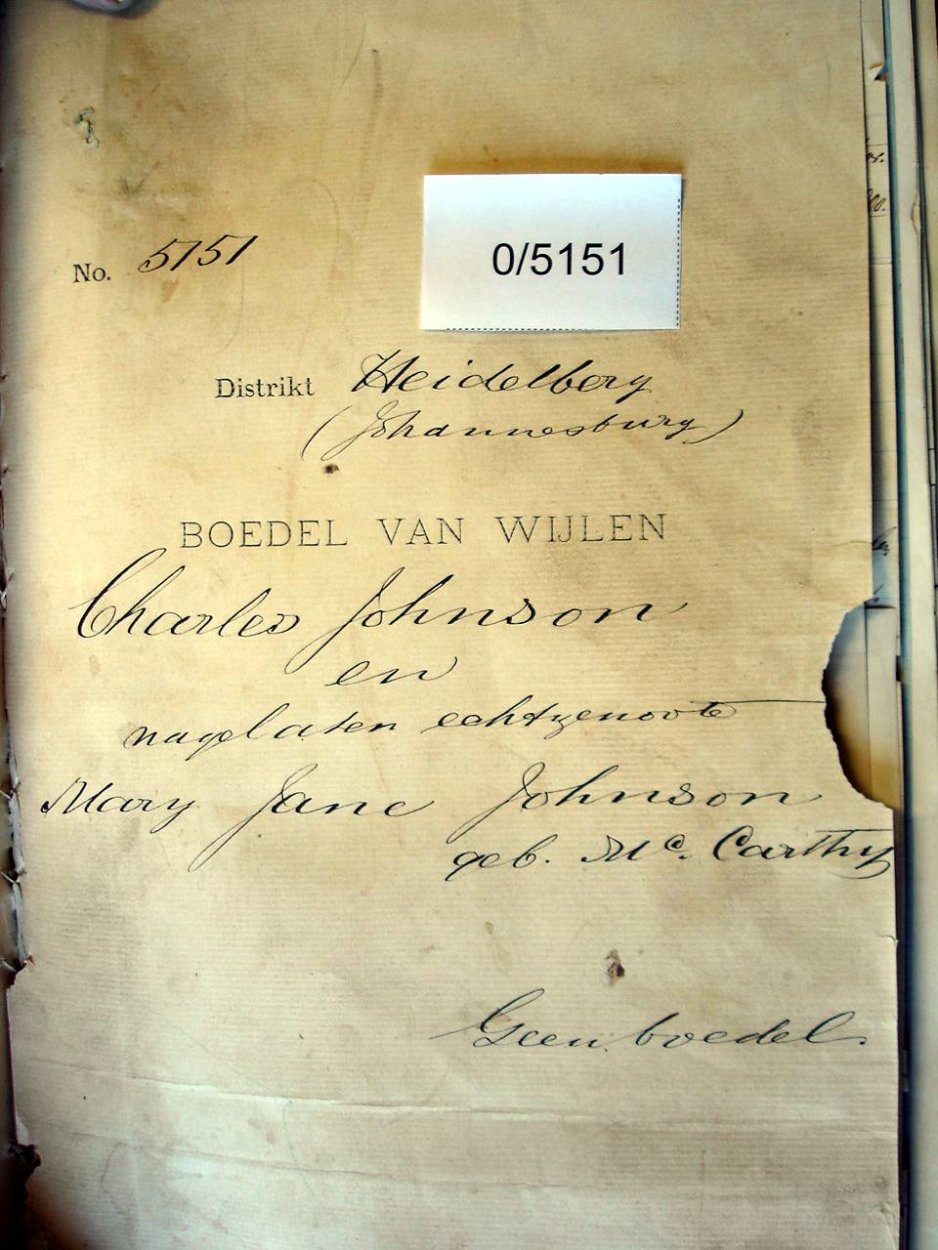 No. 5151
0/5151
Distrikt Heidelberg
(Johannesburg)
BOEDEL VAN WIJLEN
Charles Johnson
en
nagelaten echtgenoote
Mary Jane Johnson
geb. Mc. Carthy
Geen boedel.